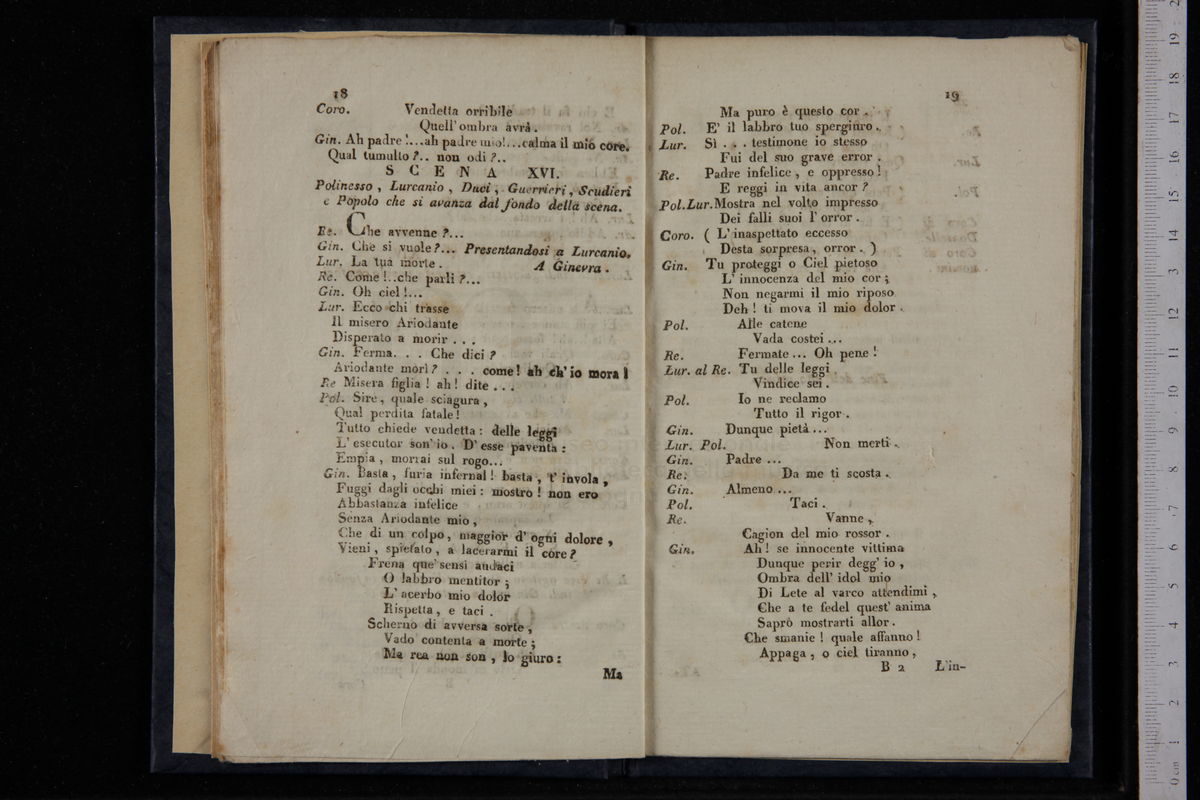 18
Coro. Vendetta orribile
Quell' ombra avrà.
Gin. Ah padre !...ah padre mio!...calma il mio core.
Qual tumulto ?.. non odi ?..
SCENA XVI.
Polinesso , Lurcanio , Duci , Guerrieri , Scudieri
e Popolo che si avanza dal fondo della scena.
Re. Che avvenne ?...
Gin. Che si vuole ?... Presentandosi a Lurcanio.
Lur. La tua morte . A Ginevra .
Re. Come !..che parli ?...
Gin. Oh ciel !...
Lur. Ecco chi trasse
Il misero Ariodante
Disperato a morir . . .
Gin. Ferma. . . Che dici ?
Ariodante morì ? . . . come! ah ch' io mora !
Re Misera figlia ! ah ! dite . . .
Pol. Sire , quale sciagura ,
Qual perdita fatale !
Tutto chiede vendetta : delle leggi
L' esecutor son' io . D' esse paventa :
Empia , morrai sul rogo...
Gin. Basta , furia infernal ! basta , t' invola ,
Fuggi dagli occhi miei : mostro ! non ero
Abbastanza infelice
Senza Ariodante mio ,
Che di un colpo, maggior d' ogni dolore ,
Vieni , spietato , a lacerarmi il core ?
Frena que' sensi audaci
O labbro mentitor ;
L' acerbo mio dolor
Rispetta , e taci .
Scherno di avversa sorte ,
Vado contenta a morte ;
Ma rea non son , lo giuro :
Ma
19
Ma puro è questo cor .
Pol. E' il labbro tuo spergiuro .
Lur. Sì . . . testimone io stesso
Fui del suo grave error .
Re. Padre infelice , e oppresso !
E reggi in vita ancor ?
Pol.Lur. Mostra nel volto impresso
Dei falli suoi l' orror .
Coro. ( L' inaspettato eccesso
Desta sorpresa , orror . )
Gin. Tu proteggi o Ciel pietoso
L' innocenza del mio cor ;
Non negarmi il mio riposo
Deh ! ti mova il mio dolor .
Pol. Alle catene
Vada costei ...
Re. Fermate ... Oh pene !
Lur. al Re. Tu delle leggi
Vindice sei .
Pol. Io ne reclamo
Tutto il rigor .
Gin. Dunque pietà ...
Lur. Pol. Non merti .
Gin. Padre ...
Re. Da me ti scosta .
Gin. Almeno ...
Pol. Taci .
Re. Vanne ,
Cagion del mio rossor .
Gin. Ah ! se innocente vittima
Dunque perir degg' io ,
Ombra dell' idol mio
Di Lete al varco attendimi ,
Che a te fedel quest' anima
Saprò mostrarti allor .
Che smanie ! quale affanno !
Appaga , o ciel tiranno ,
B 2 L'in-